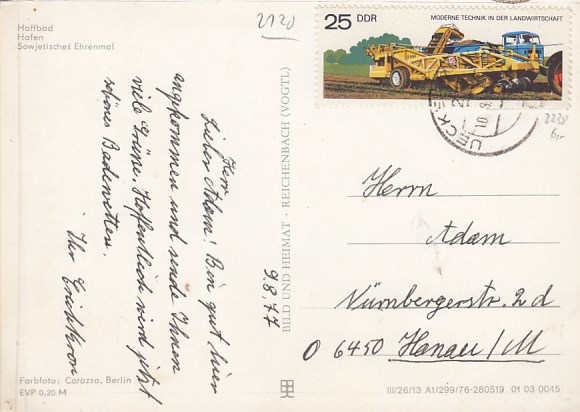 Haffbad
Hafen
Sowjetisches Ehrenmal
2120
25 DDR
MODERNE TECHNIK IN DER LANDWIRTSCHAFT
UECK
10
2238
Herr
Lieber Adam! Bin gut hier
angekommen und sende Ihnen
viele Grüsse. Hoffentlich wird jetzt
schönes Badewetter.
Ihr
9.8.77
BILD UND HEIMAT · REICHENBACH (VOGTL)
Herrn
Adam
Nürnbergerstr. 2 d
O 6450 Hanau/M
Farbfoto: Corazza, Berlin
EVP 0,20 M
III/26/13 A1/299/76-280519 01 03 0045